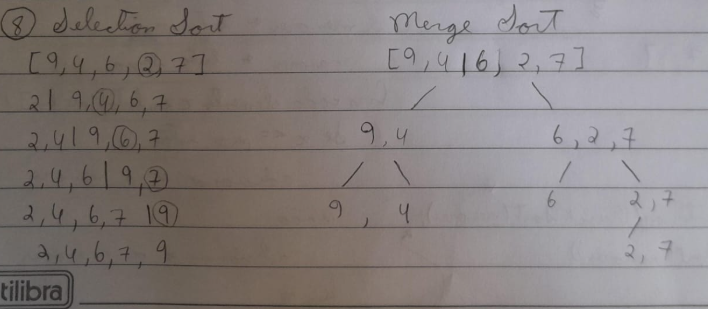 ⑧ Selection Sort
[9, 4, 6, ②, 7]
2 | 9, ④, 6, 7
2, 4 | 9, ⑥, 7
2, 4, 6 | 9, ⑦
2, 4, 6, 7 | ⑨
2, 4, 6, 7, 9
Merge Sort
[9, 4 | 6, 2, 7]
9, 4 6, 2, 7
9, 4 6 2, 7
2, 7
tilibra